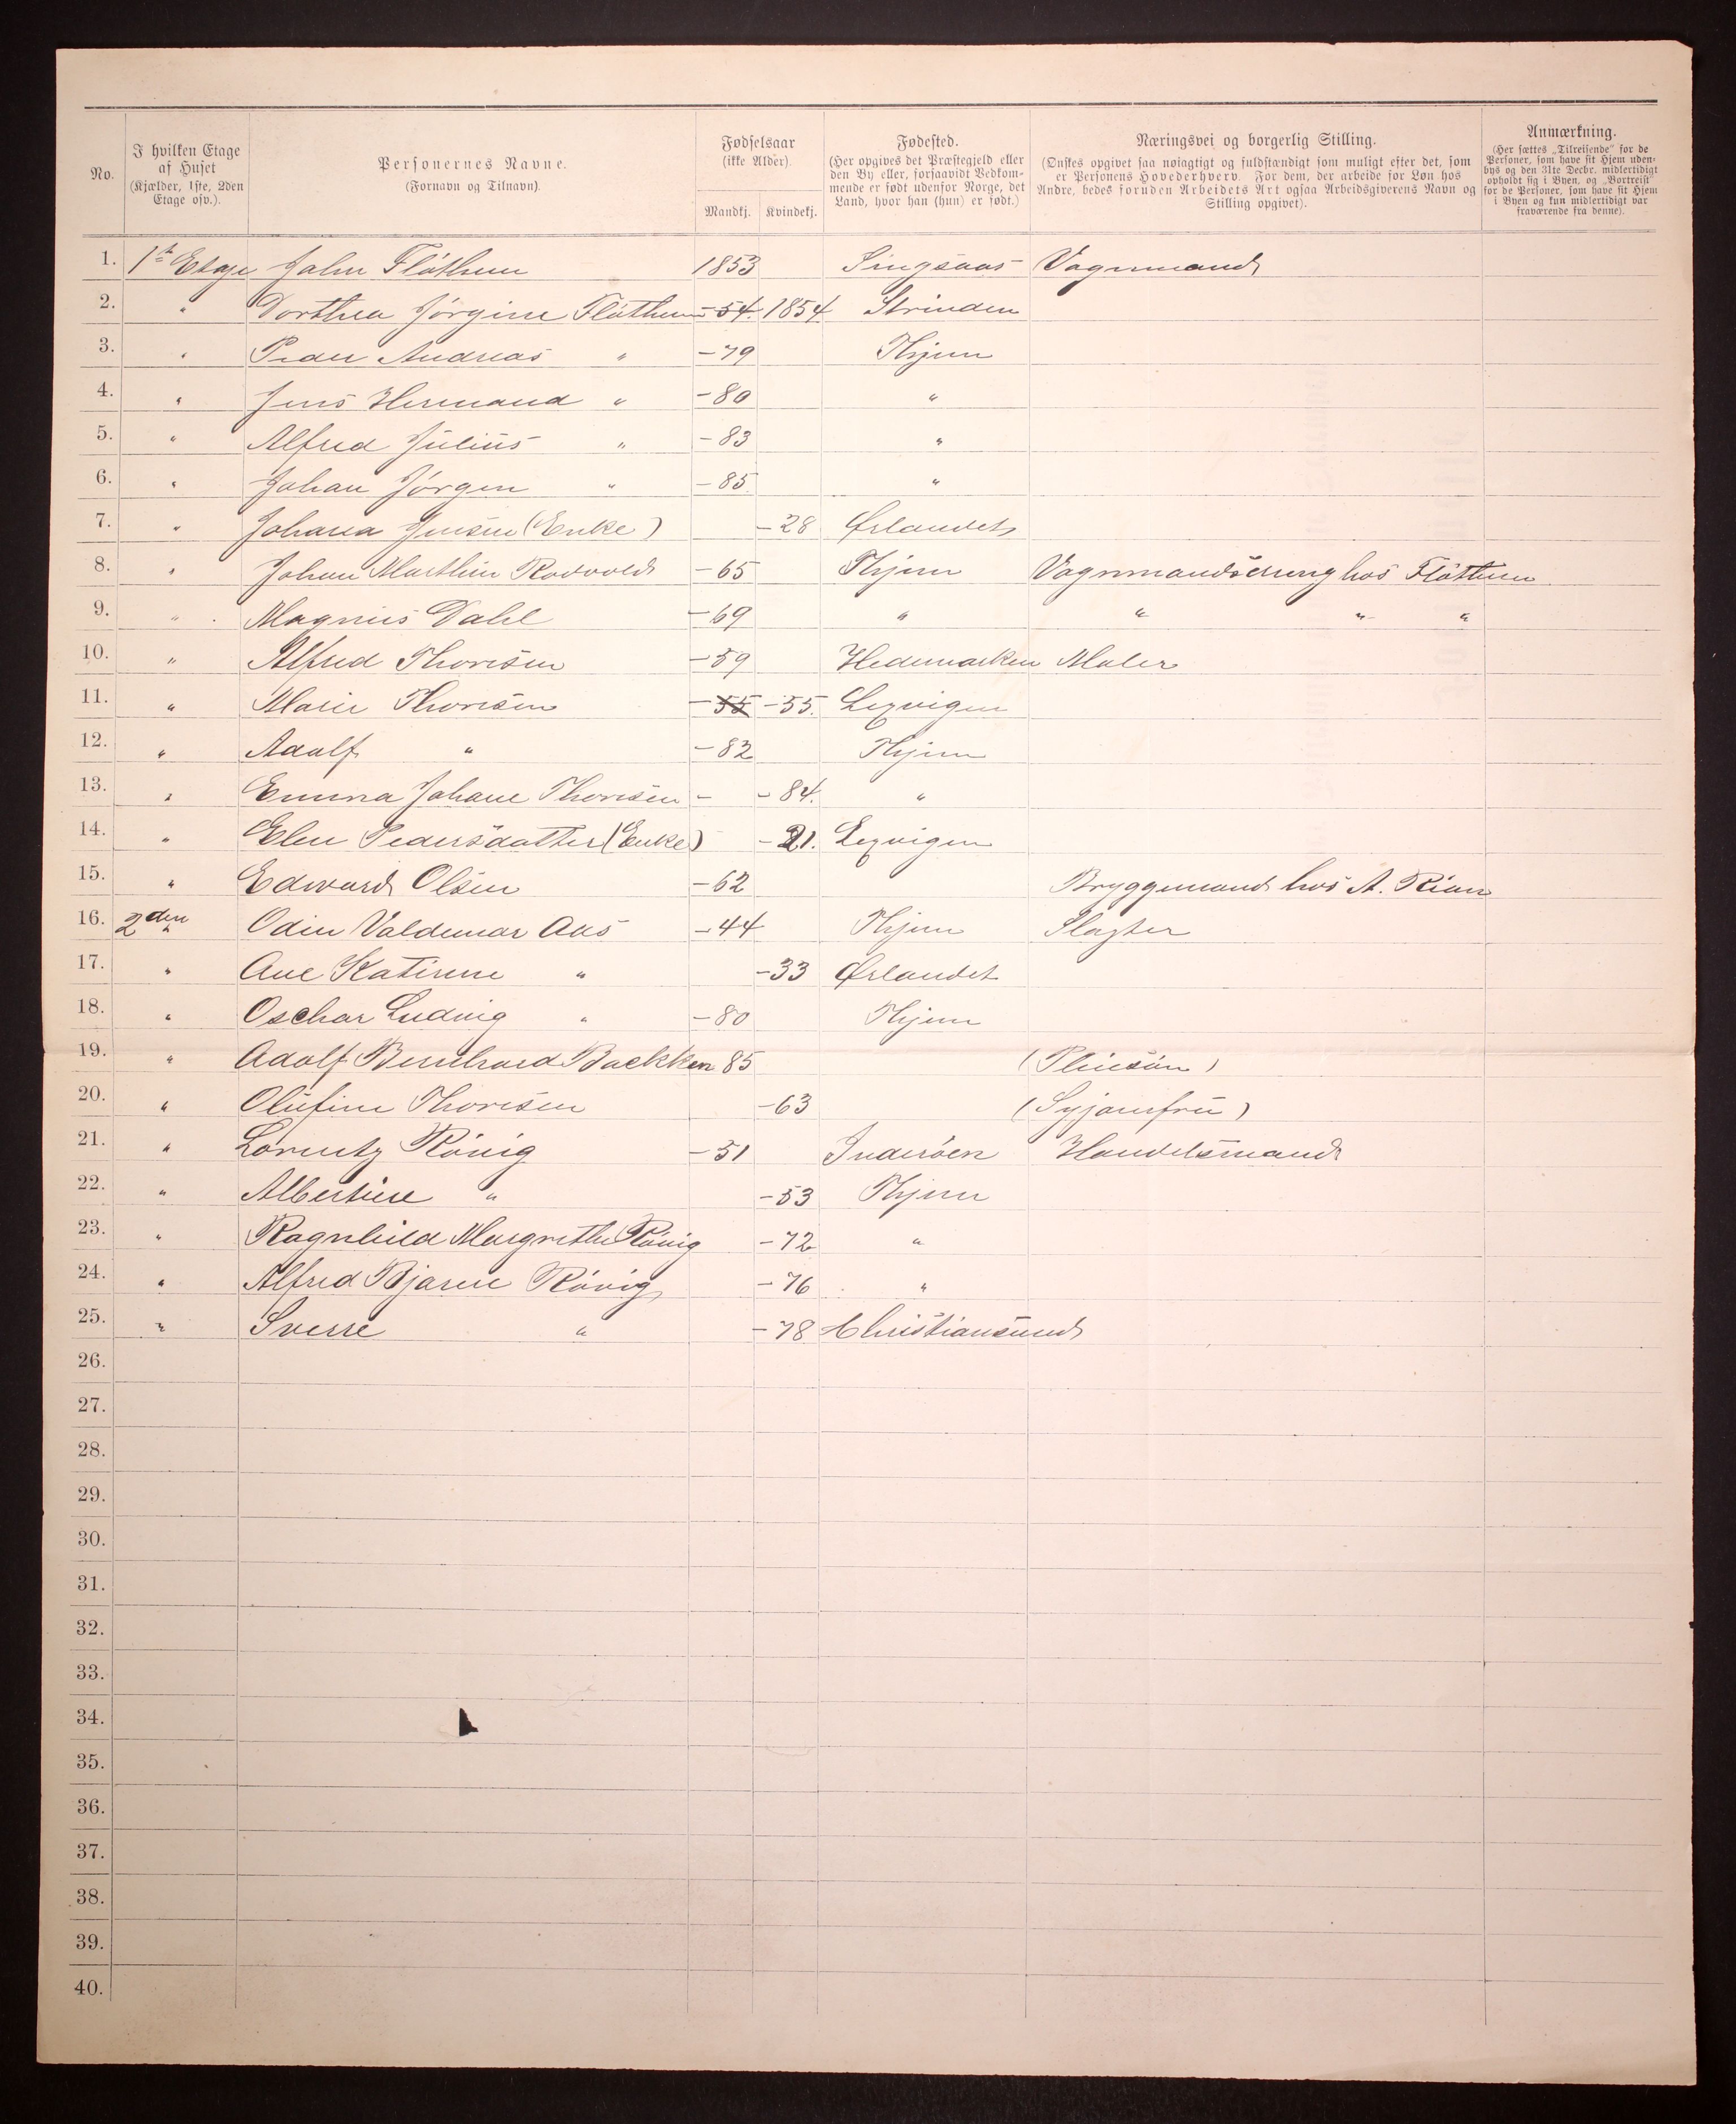 No.
I hvilken Etage af Huset (Kjælder, 1ste, 2den Etage osv.).
Personernes Navne. (Fornavn og Tilnavn).
Fødselsaar (ikke Alder). Mandkj. Kvindekj.
Fødested. (Her opgives det Præstegjeld eller den By eller, forsaavidt Vedkommende er født udenfor Norge, det Land, hvor han (hun) er født.)
Næringsvei og borgerlig Stilling. (Ønskes opgivet saa nøiagtigt og fuldstændigt som muligt efter det, som er Personens Hovederhverv. For dem, der arbeide for Løn hos Andre, bedes foruden Arbeidets Art ogsaa Arbeidsgiverens Navn og Stilling opgivet).
Anmærkning. (Her sættes „Tilreisende" for de Personer, som have sit Hjem udenbys og den 31te Decbr. midlertidigt opholdt sig i Byen, og „Bortreist" for de Personer, som have sit Hjem i Byen og kun midlertidigt var fraværende fra denne).
1. 1ste Etage John Fløthum 1853 Singsaas Vognmand
2. " Dorthea Jørgine Fløthum -54. 1854 Strinden
3. " Peder Andreas " -79 Thjem
4. " Jens Hermand " -80 "
5. " Alfred Julius " -83 "
6. " Johan Jørgen " -85 "
7. " Johana Jensen (Enke) -28 Ørlandet
8. " Johan Marthin Rodvold -65 Thjem Vognmandsdreng hos Fløthum
9. " Magnus Dahl -69 " " " "
10. " Alfred Thoresen -59 Hedemarken Maler
11. " Marie Thoresen -55 -55. Lexvigen
12. " Adolf " -82 Thjem
13. " Emma Johane Thoresen - -84. "
14. " Elen Pedersdatter (Enke) -21. Lexvigen
15. " Edvard Olsen -62 Bryggemand hos A. Rian
16. 2den Odin Valdemar Aas -44 Thjem Slagter
17. " Ane Katirine " -33 Ørlandet
18. " Oschar Ludvig " -80 Thjem
19. " Adolf Bernhard Backken 85 (Pleiesøn)
20. " Olufine Thoresen -63 (Syjomfru)
21. " Lorentz Røvig -51 Inderøen Handelsmand
22. " Albertine " -53 Thjem
23. " Ragnhild Margrethe Røvig -72 "
24. " Alfred Bjarne Røvig -76 "
25. " Sverre " -78 Christiansund
26.
27.
28.
29.
30.
31.
32.
33.
34.
35.
36.
37.
38.
39.
40.